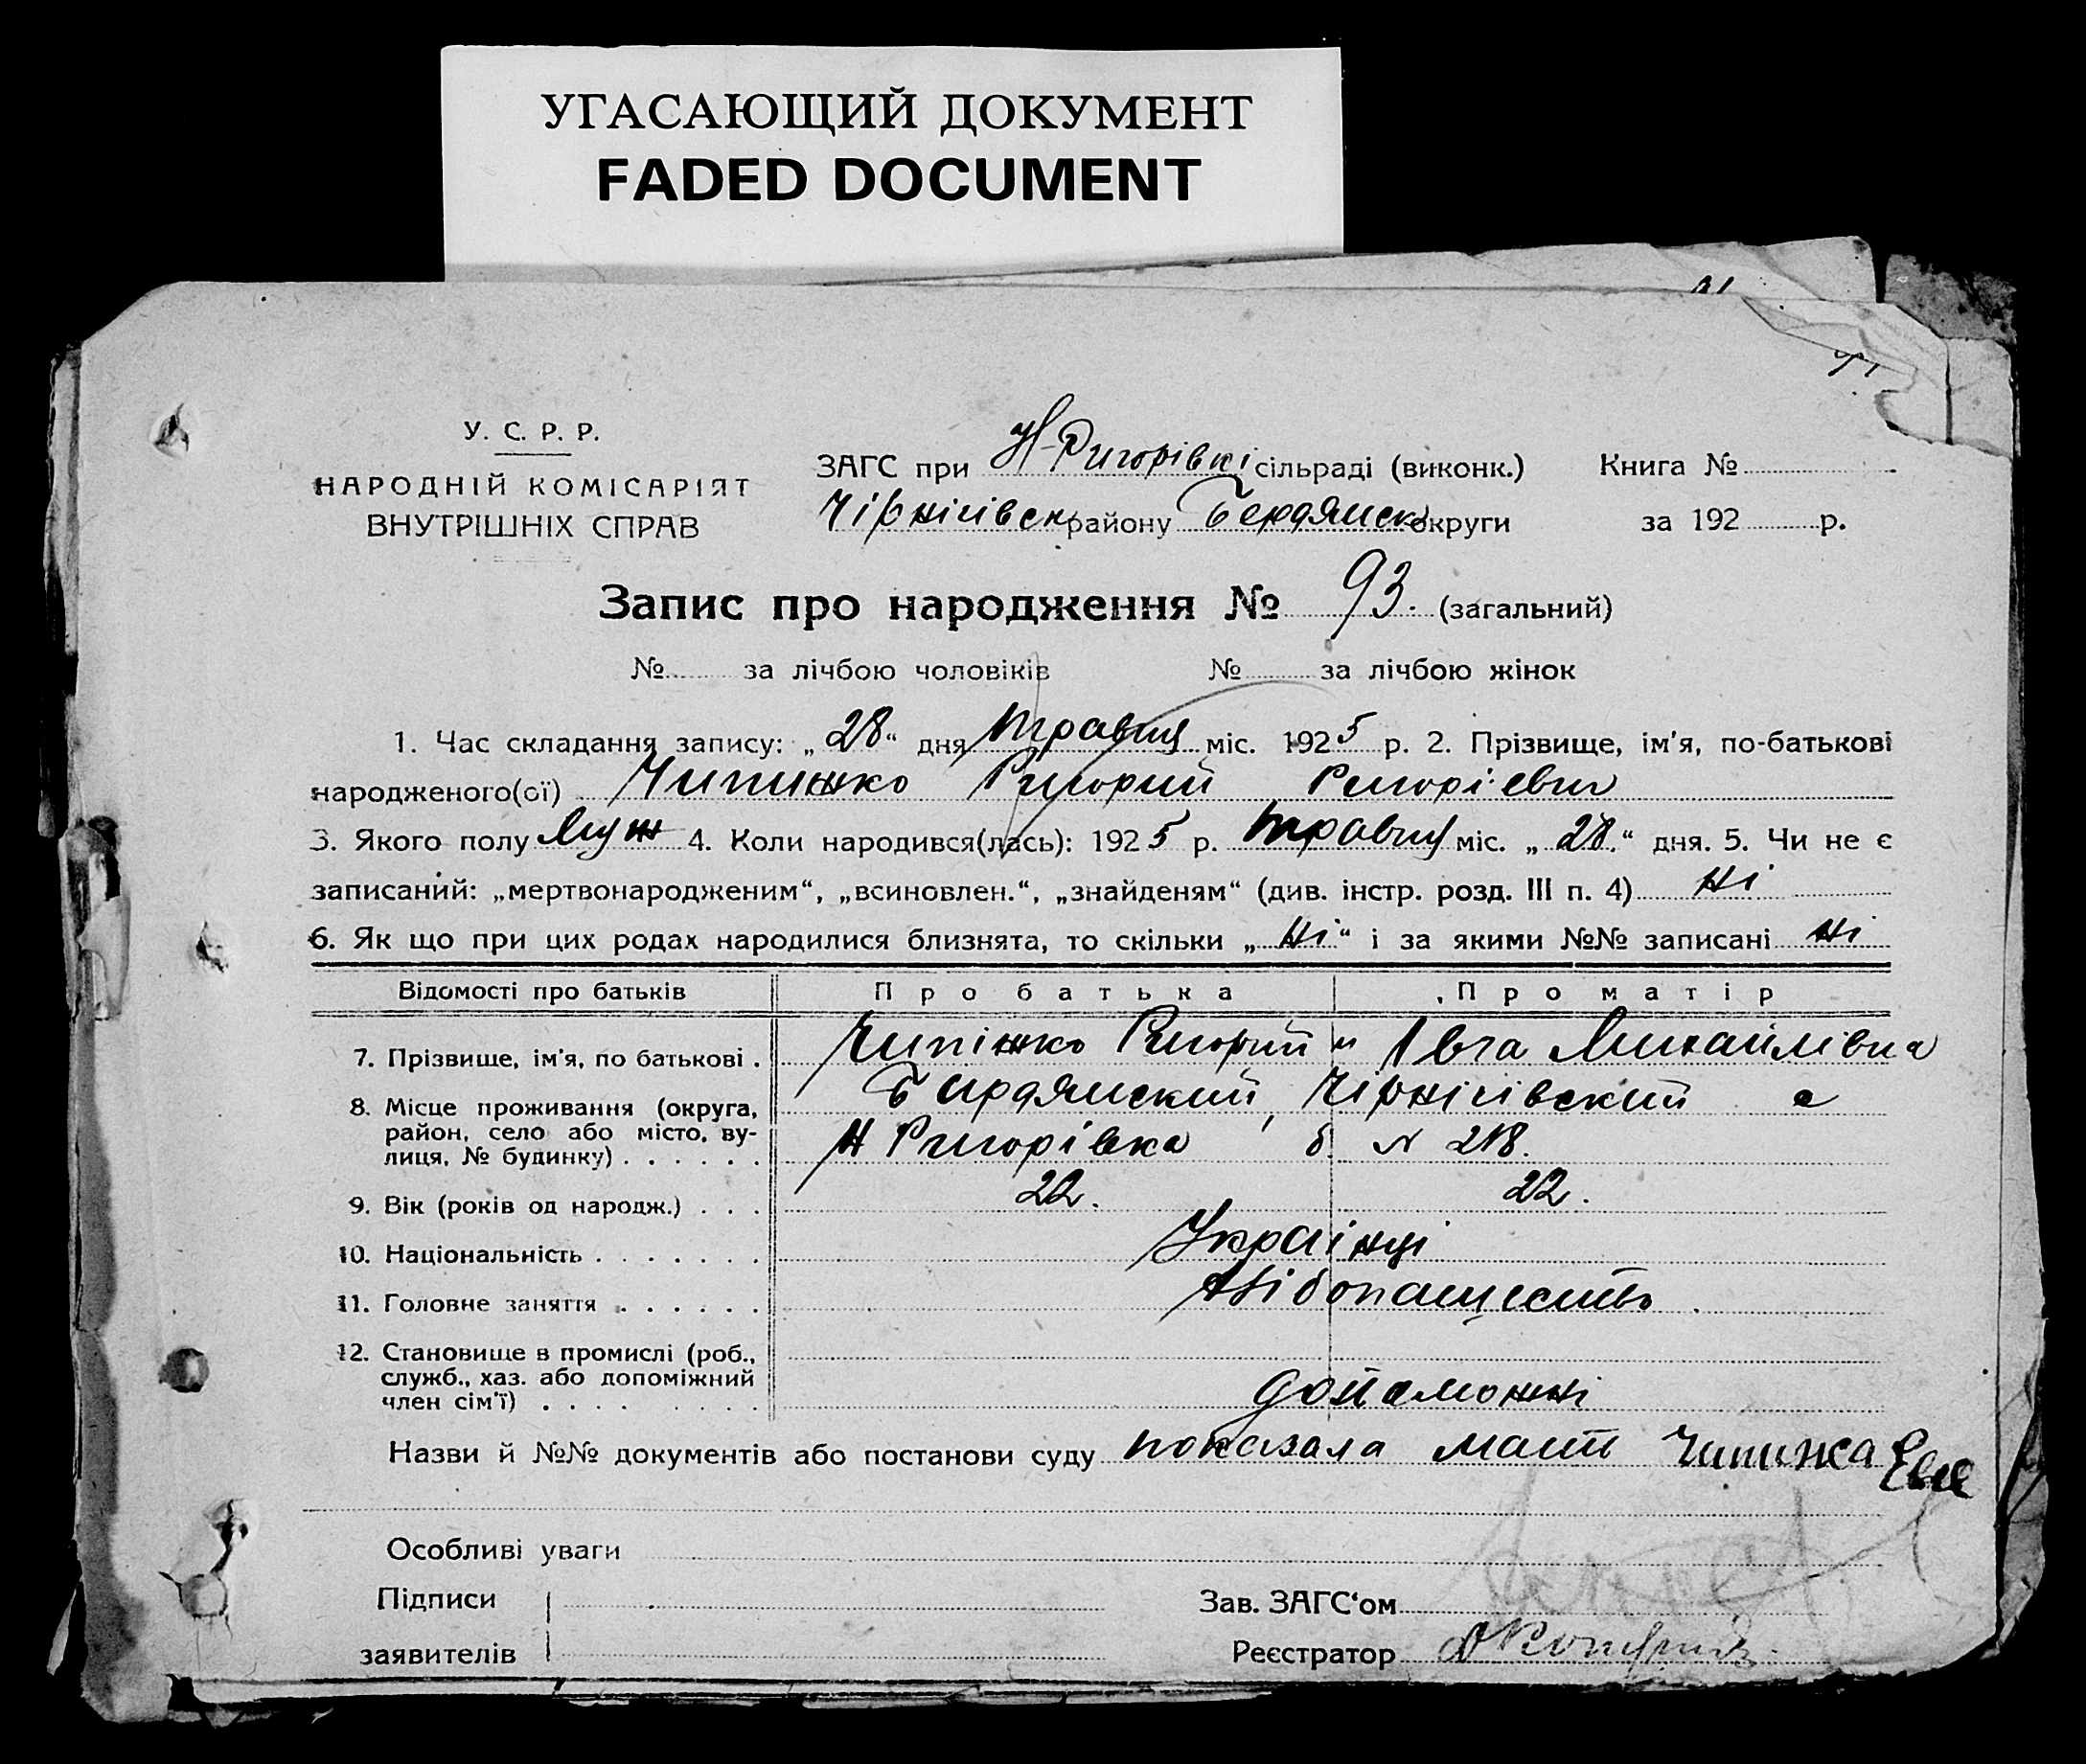 УГАСАЮЩИЙ ДОКУМЕНТ
FADED DOCUMENT
У. С. Р. Р.
НАРОДНІЙ КОМІСАРІЯТ
ВНУТРІШНІХ СПРАВ
ЗАГС при Н-Ригорівкі сільраді (виконк.)
Чірнігівск району Бердянск округи
Книга №
за 192 р.
Запис про народження № 93. (загальний)
№ за лічбою чоловіків № за лічбою жінок
1. Час складання запису: „28“ дня травня міс. 1925 р. 2. Прізвище, ім'я, по-батькові
народженого(ої) Чипижко Ригорий Ригорієвич
3. Якого полу Муж 4. Коли народився(лась): 1925 р. травня міс. „28.“ дня. 5. Чи не є
записаний: „мертвонародженим“, „всиновлен.“, „знайденям“ (див. інстр. розд. III п. 4) Ні
6. Як що при цих родах народилися близнята, то скільки „Ні“ і за якими №№ записані Ні
Відомості про батьків Про батька Про матір
7. Прізвище, ім'я, по батькові . Чипіжко Ригорий и Івга Михайлівна
8. Місце проживання (округа, район, село або місто, вулиця, № будинку) Бирдянский, Чірнігівский с
Н Ригорівка б. N 218.
9. Вік (років од народж.) . . . 22. 22.
10. Національність . . . . . . . Українці
11. Головне заняття . . . . . . Хлібопашество.
12. Становище в промислі (роб.,
служб., хаз. або допоміжний
член сім'ї) . . . . допоможні
Назви й №№ документів або постанови суду показала мати Чипижка Евга
Особливі уваги
Підписи
заявителів
Зав. ЗАГС‘ом
Реєстратор